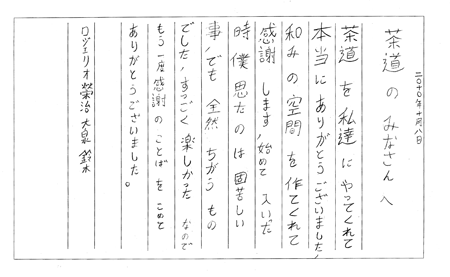 二〇一〇年十月八日
茶道のみなさんへ
茶道を私達にやってくれて
本当にありがとうございました、
和みの空間を作てくれて
感謝します、始めて入いた
時僕思たのは固苦しい
事、でも全然ちがうもの
でした、すっごく楽しかったなので
もう一度感謝のことばをこめて
ありがとうございました。
ロジェリオ榮治大泉鈴木